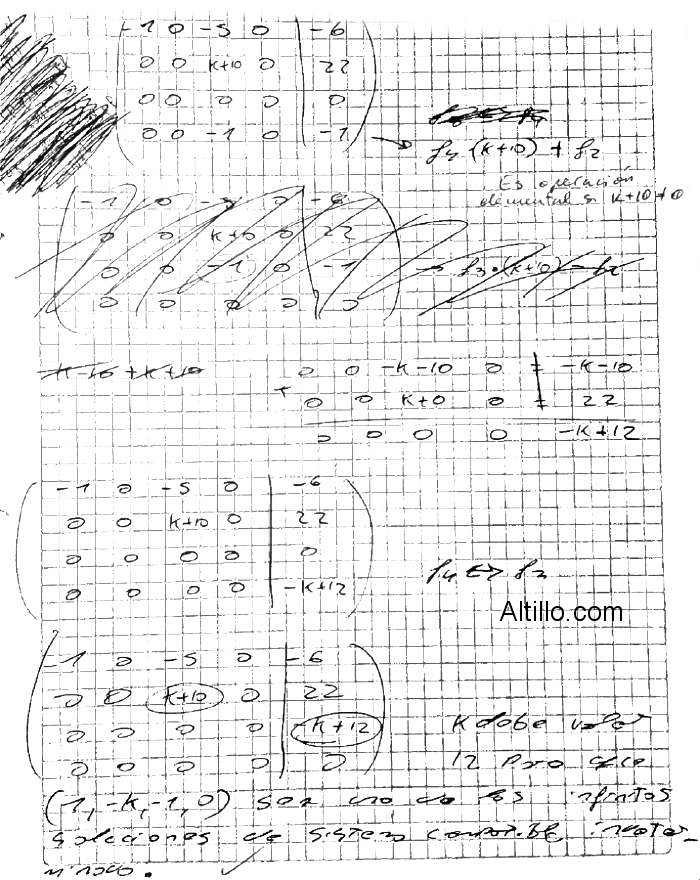 -1 0 -5 0 | -6
0 0 k+10 0 | 22
0 0 0 0 | 0
0 0 -1 0 | -1 → f4 (k+10) + f2
Es operación
elemental si k+10≠0
-1 0 -5 0 | -6
0 0 k+10 0 | 22
0 0 -1 0 | -1 → f3·(k+10) - f2
0 0 0 0 | 0
-k-10 + k+10
0 0 -k-10 0 | -k-10
+ 0 0 k+10 0 | 22
0 0 0 0 -k+12
-1 0 -5 0 | -6
0 0 k+10 0 | 22
0 0 0 0 | 0
0 0 0 0 | -k+12
f4 ↔ f3
Altillo.com
-1 0 -5 0 | -6
0 0 k+10 0 | 22
0 0 0 0 | -k+12 k debe valer
0 0 0 0 | 0 12 para que
(1, -k, -1, 0) sea una de las infinitas
soluciones de sistema compatible indeter-
minado. ✓